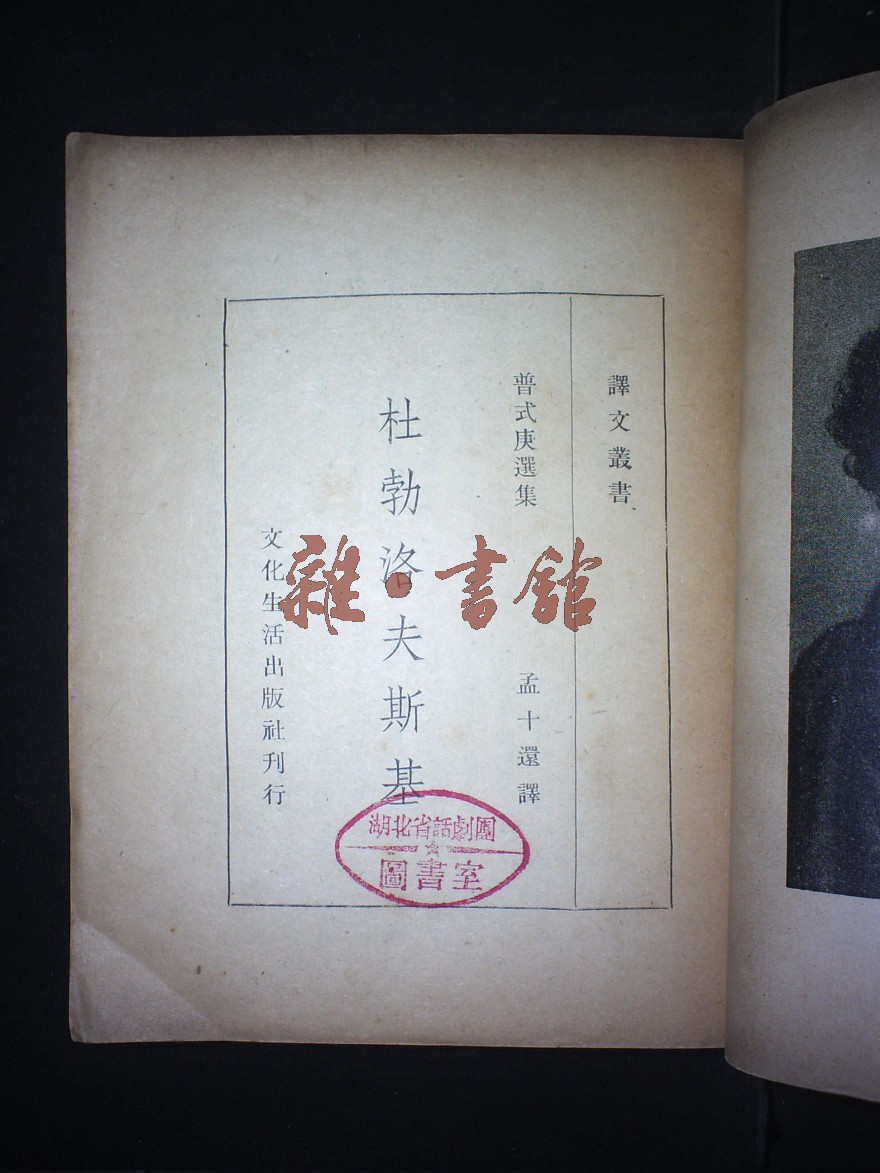 譯文叢書
普式庚選集
孟十還譯
杜勃洛夫斯基
文化生活出版社刊行
湖北省話劇團
圖書室
雜·書館